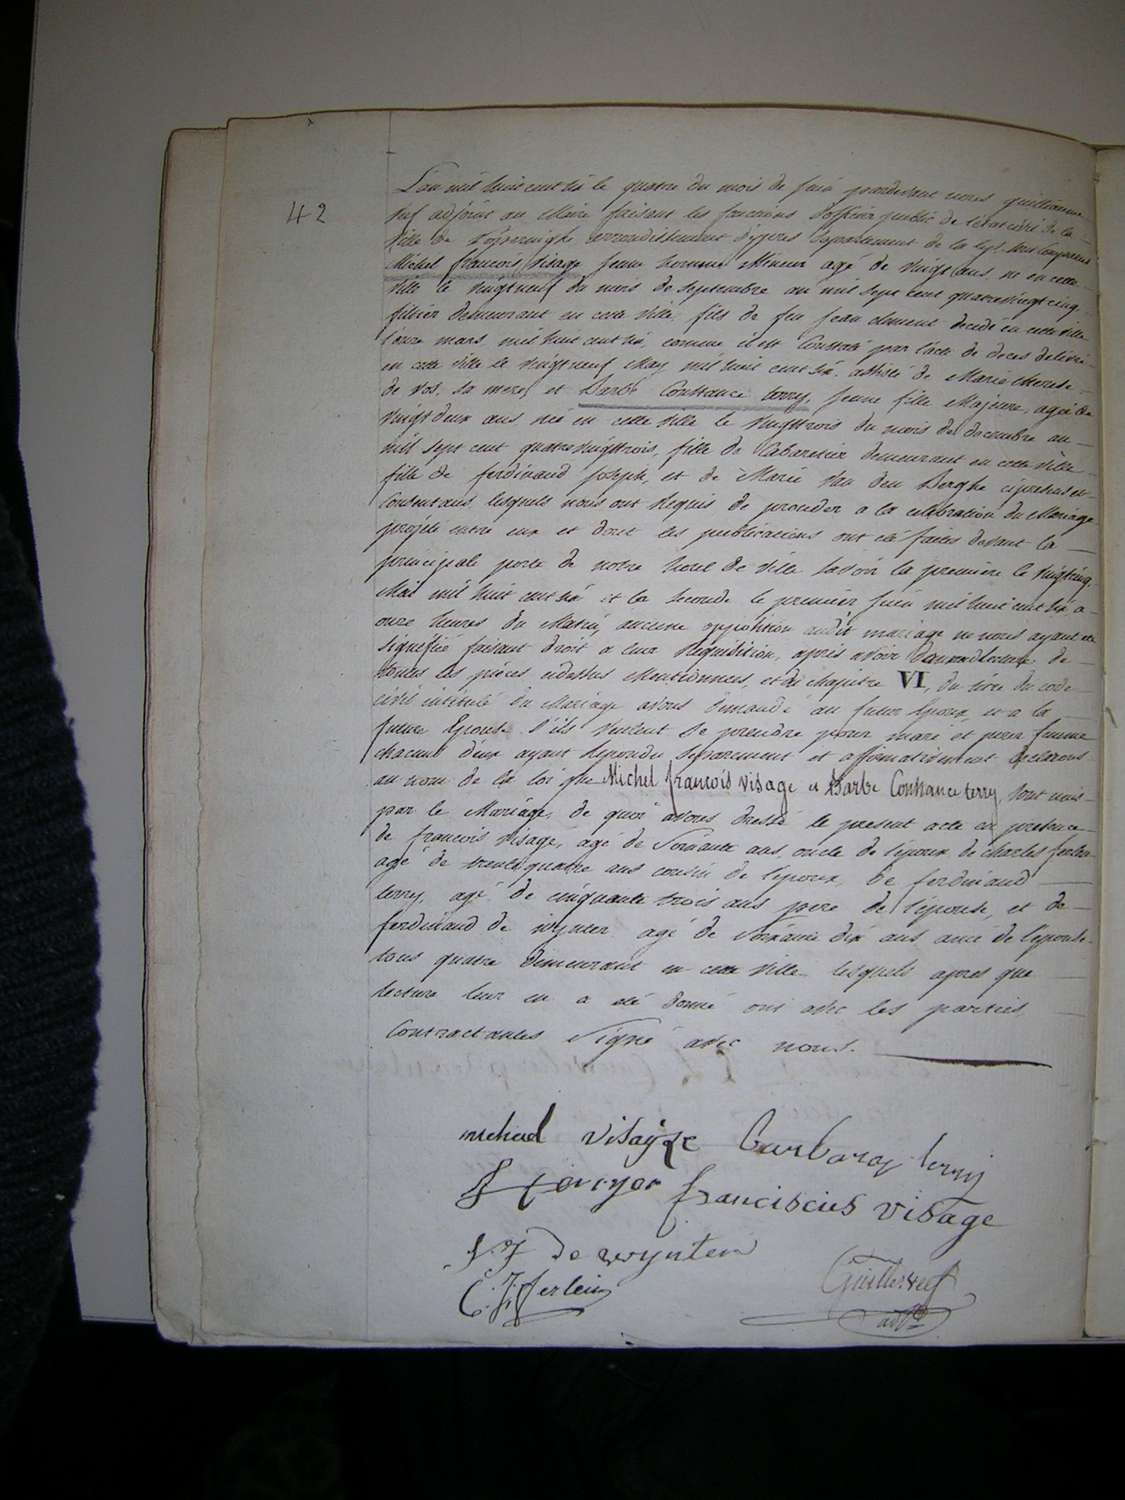 42
L'an mil huit cent six le quatre du mois de juin pardevant nous guilliaume
neuf adjoint au Maire faisant les fonctions d'officier public de l'etat civil de la
ville de arrondissement d'ypres departement de la Lys. sont comparus
Michel francois Visage jeune homme Mineur agé de vingt ans ne en cette
ville le vingtneuf du mois de septembre an mil sept cent quatrevingtcinq
filtier demeurant en cette ville, fils de feu jean clement decedé en cette ville
l'onze mars mil huit cent six, comme il est Constaté par l'acte de deces delivré
en cette ville le vingtneuf May mil huit cent six. assisté de Marie therese
de vos. sa mere, et Barbe Constance terry, jeune fille Majeure, agée de
vingtdeux ans née en cette ville le vingttrois du mois de decembre an
mil sept cent quatrevingttrois, fille de Cabaretier demeurant en cette ville
fille de ferdinand joseph, et de Marie Van den Berghe cipresens et
Consentans, lesquels nous ont Requis de proceder a la celebration du Mariage
projeté entre eux et dont les publications ont été faites devant la
principale porte de notre hotel de ville savoir la premiere le vingtcinq
Mai mil huit cent six et la seconde le premier juin mil huit cent six a
onze heures du Matin, aucune opposition audit mariage ne nous ayant été
signifiée faisant droit a leur Requisition, après avoir donné lecture de
toutes les pièces cidessus Mentionnées, et du chapitre VI, du titre du code
civil intitulé du Mariage avons demandé au futur Epoux et a la
future Epouse s'ils veulent se prendre pour mari et pour femme
chacun d'eux ayant Repondu separement et affirmativement declarons
au nom de la loi que Michel francois visage et Barbe Constance terry, sont unis
par le Mariage, de quoi avons dressé le present acte en presence
de francois visage, agé de Soixante ans, oncle de l'époux, de charles ferlein
agé de trentequatre ans cousin de l'epoux, de ferdinand
terry, agé de cinquante trois ans pere de l'épouse, et de
ferdinand de wynter agé de Soixante dix ans ami de l'épouse
tous quatre demeurant en cette ville lesquels apres que
lecture leur en a été donné ont avec les parties
Contractantes signé avec nous.
michiel visayge Barbara terrij
franciscus visage
f. J de wynter
C: J: ferlein Guill: neuf
adj